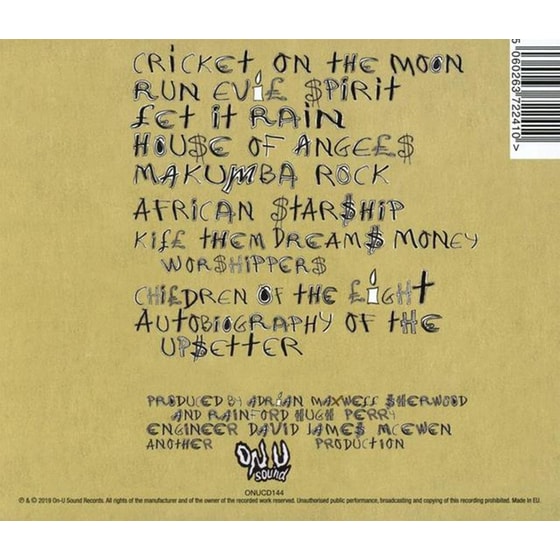 CRICKET ON THE MOON
RUN EVIL SPIRIT
LET IT RAIN
HOUSE OF ANGELS
MAKUMBA ROCK
AFRICAN STARSHIP
KILL THEM DREAMS MONEY
WORSHIPPERS
CHILDREN OF THE LIGHT
AUTOBIOGRAPHY OF THE
UPSETTER
PRODUCED BY ADRIAN MAXWELL SHERWOOD
AND RAINFORD HUGH PERRY
ENGINEER DAVID JAMES MCEWEN
ANOTHER ON U SOUND PRODUCTION
ONUCD144
℗ & © 2019 On-U Sound Records. All rights of the manufacturer and of the owner of the recorded work reserved. Unauthorised public performance, broadcasting and copying of this recording prohibited. Made in EU.
5 060263 722410 >